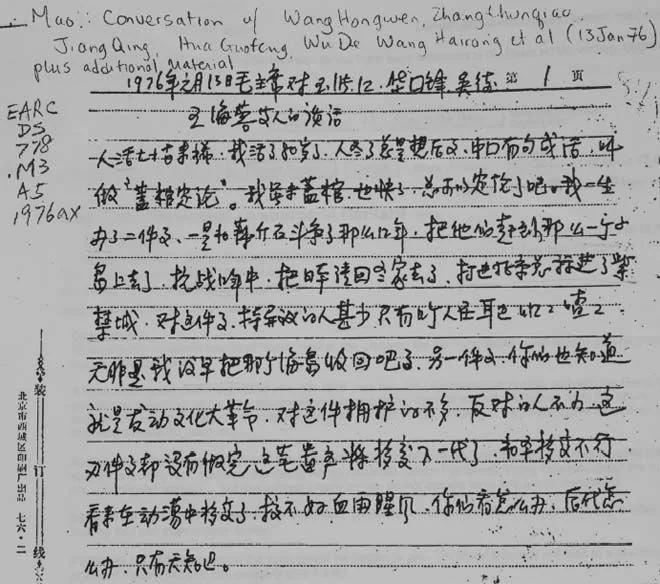 Mao: Conversation w/ Wang Hongwen, Zhang Chunqiao
Jiang Qing, Hua Guofeng, Wu De Wang Hairong et al (13 Jan 76)
plus additional material
EARC
DS
778
.M3
A5
1976ax
1976年 月13日毛主席对王 江、华 锋 吴德 第 1 页
王海蓉 人的谈话
人活七十古来稀,我活了 岁了,人 了总是想后 。中口有句成话,叫
做“盖棺定论”。我 未盖棺,也快了,总可以定论了吧。我一生
办了二件 ,一是和蒋介石斗争了那么 年,把他们赶到那么 个小
岛上去了,抗战 年,把日本请回 家去了,打进 京总 进了紫
禁城。对这件 ,持异议的人甚少,只有 个人在耳
无非是我 早把那个海岛收回吧了。另一件 你们也知道
就是发动文化大革命,对这件拥护的不多,反对的人不为 这
件 都没有做完,这笔 产 移交下一代了,和平移交不行
看来在动荡中移交了,搞不好血雨腥风,你们看怎么办,后代怎
么办,只有天知 。
装 订 线
北京市西城区 印刷厂出品 七六·二